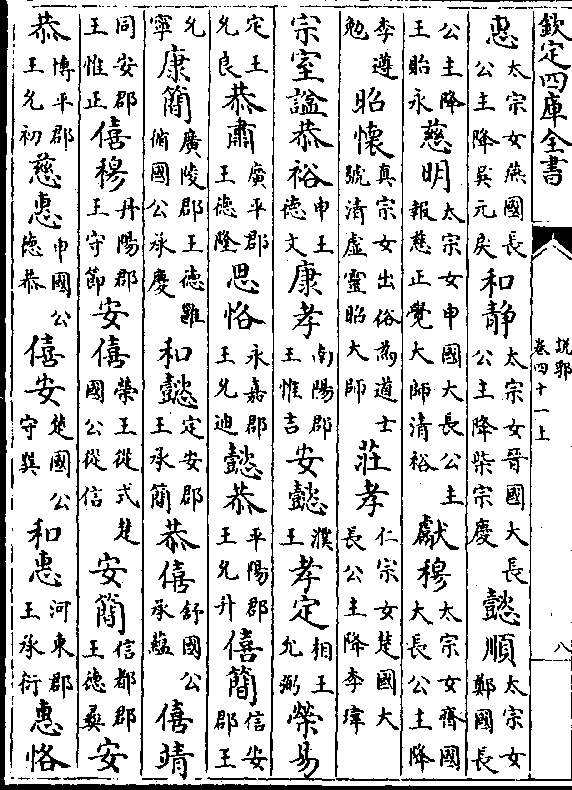 欽定四庫全書
說郛
卷四十一上
八
惠太宗女燕國長公主降吳元扆和靜太宗女晉國大長公主降柴宗慶懿順太宗女鄭國長
公主降王貽永慈明太宗女申國大長公主報慈正覺大師清裕獻穆太宗女齊國大長公主降
李遵勉昭懷真宗女出俗為道士號清虛靈昭大師莊孝仁宗女楚國大長公主降李瑋
宗室諡恭裕申王德文康孝南陽郡王惟吉安懿濮王孝定相王允弼榮易
定王允良恭肅廣平郡王德隆思恪永嘉郡王允迪懿恭平陽郡王允升僖簡信安郡王
允寧康簡廣陵郡王德雖脩國公承慶和懿定安郡王承簡恭僖舒國公承蘊僖靖
同安郡王惟正僖穆丹陽郡王守節安僖榮王從式楚國公從信安簡信都郡王德彝安
恭博平郡王允初慈惠申國公德恭僖安楚國公守巽和惠河東郡王承衍惠恪